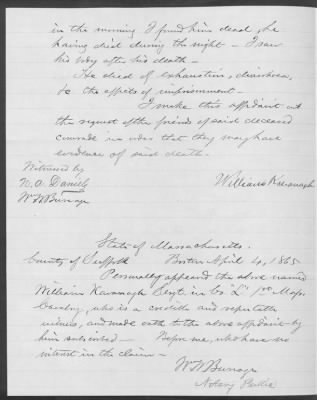 in the morning I found him dead, he
having died during the night - I saw
his body after his death -
He died of exhaustion, diarrhoea,
& the effects of imprisonment -
I make this affidavit at
the request of the friends of said deceased
comrade in order that they may have
evidence of said death -
Witnessed by
W. A. Daniels
William Kavanagh
Wm W Burrage
State of Massachusetts.
County of Suffolk Boston April 4, 1865
Personally appeared the above named
William Kavanagh Sergt. in Co "L" 1st Mass
Cavalry, who is a credible and reputable
witness, and made oath to the above affidavit by
him subscribed - Before me, who have no
interest in the claim -
Wm W Burrage
Notary Public